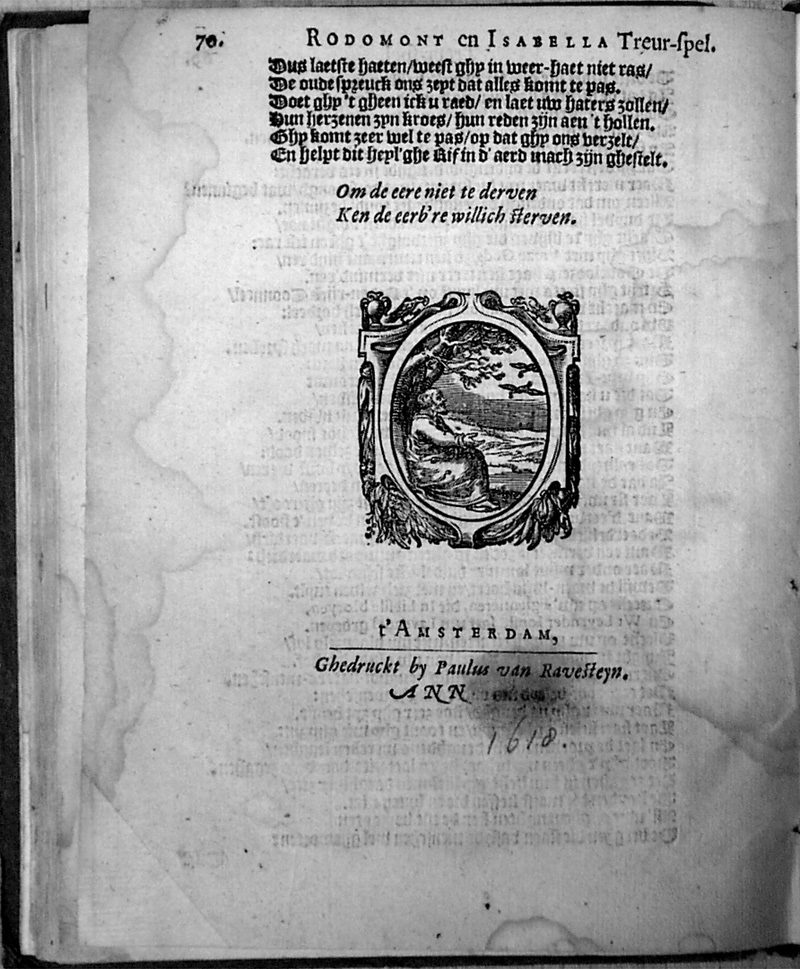 70. RODOMONT en ISABELLA Treur-spel.
Dus laetste haeten/weest ghy in weer-haet niet ras/
De oude spreuck ons zeyt dat alles komt te pas.
Doet ghy 't gheen ick u raed/ en laet uw haters zollen/
Hun herzenen zyn kroes/ hun reden zijn aen 't hollen.
Ghy komt zeer wel te pas/op dat ghy ons verzelt/
En helpt dit heyl'ghe Rif in d' aerd mach zijn ghestelt.
Om de eere niet te derven
Ken de eerb're willich sterven.
t'AMSTERDAM,
Ghedruckt by Paulus van Ravesteyn.
ANN
1618.